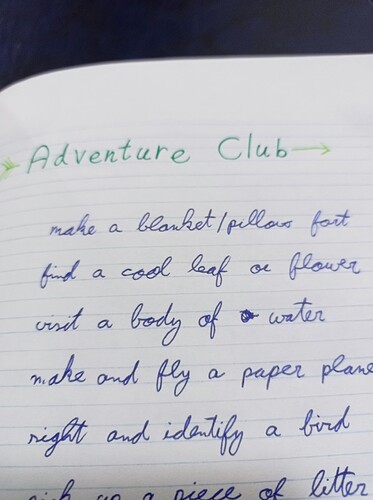 Adventure Club
make a blanket/pillow fort
find a cool leaf or flower
visit a body of water
make and fly a paper plane
sight and identify a bird
pick up a piece of litter